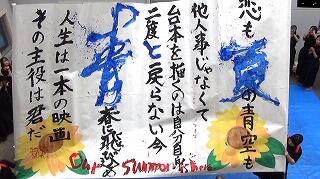 恋も夏の青空も
他人事じゃなくて
台本を描くのは自分自身
二度と戻らない今
青春に飛び込め
人生は一本の映画
その主役は君だ
Our Summer is here